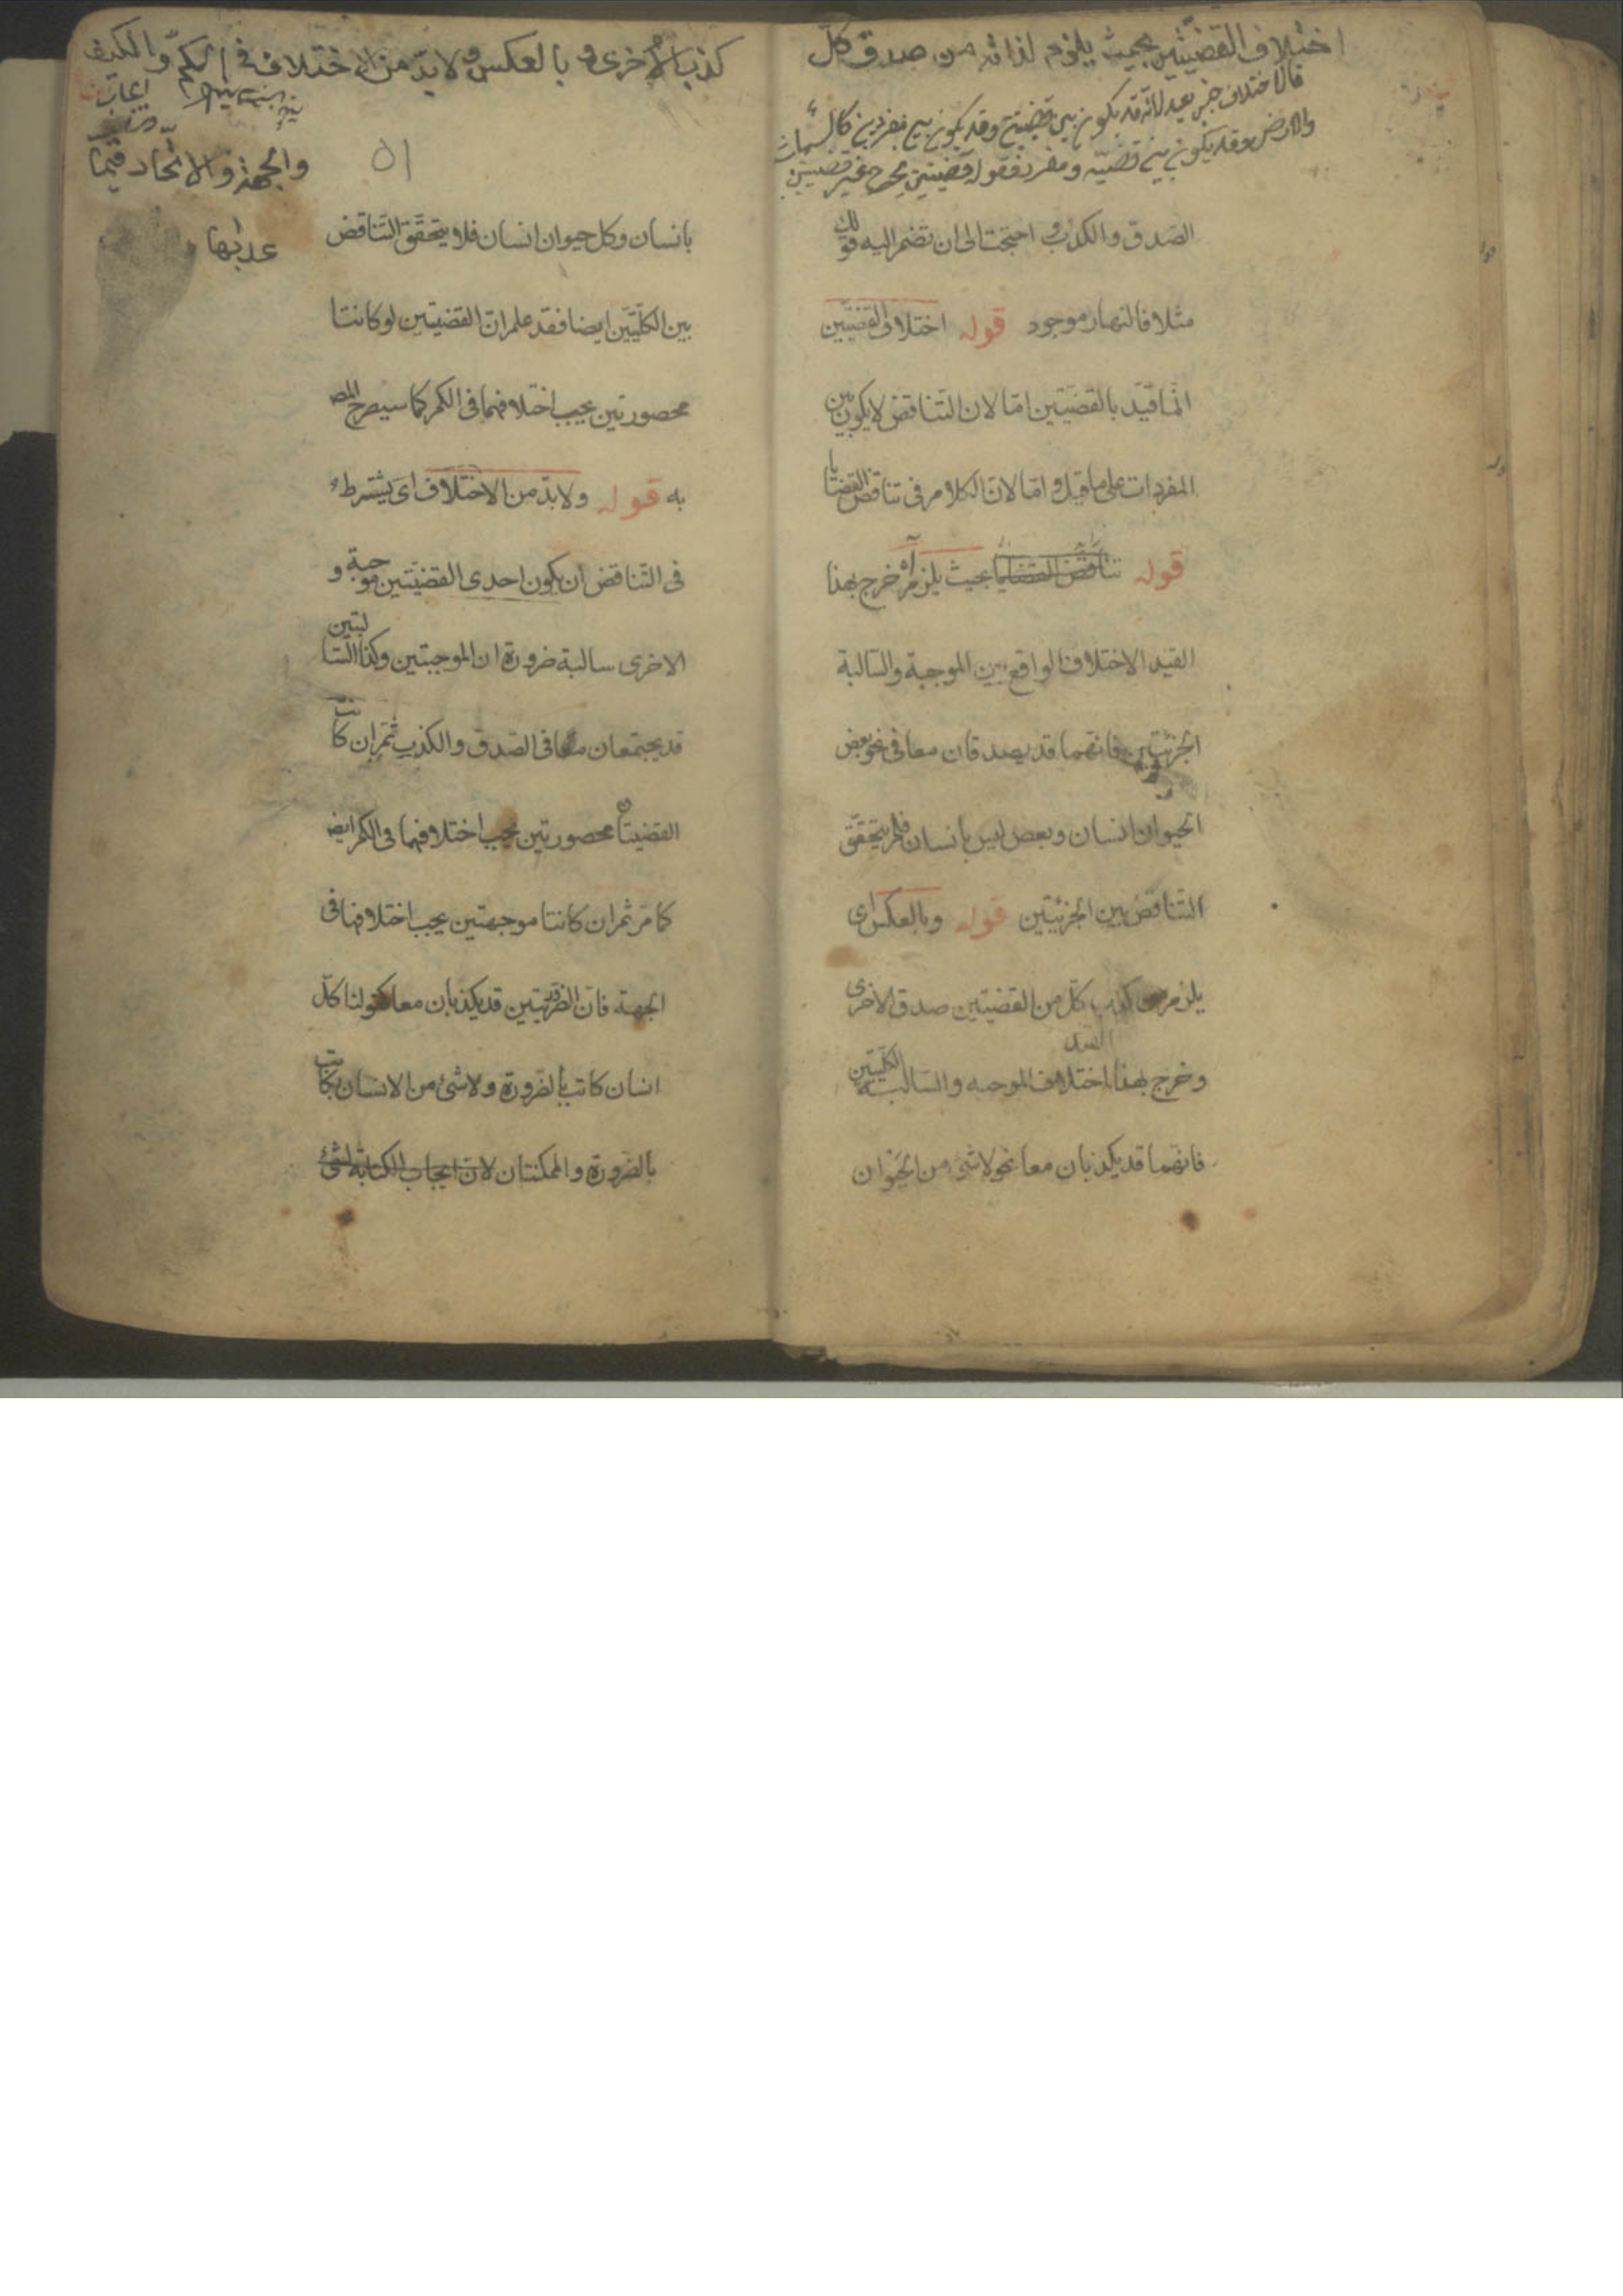 اختلاف القضيتين بحيث يلزم لذاته من صدق كلّ
فالاختلاف جنس بعيد لانّه قد يكون بين قضيتين وقد يكون بين مفردين كالسماء
والارض وقد يكون بين قضيّة ومفرد فقوله قضيتين يخرج غير قضيتين
الصّدق والكذب احتجت الى ان تضم اليه قولك
مثلا فالنهار موجود قوله اختلاف القضيّتين
انّما قيّد بالقضيّتين امّا لان التّناقض لا يكون بين
المفردات على ما قيل وامّا لانّ الكلام فى تناقض القضايا
قوله تناقض القضايا بحيث يلزم اه خرج بهذا
القيد الاختلاف الواقع بين الموجبة والسّالبة
الجزئيّتين فانّهما قد يصدقان معا فى نحو بعض
الحيوان انسان وبعض ليس بانسان فلم يتحقّق
التّناقض بين الجزئيّتين قوله وبالعكس اى
يلزم من كذب كلّ من القضيّتين صدق الاخرى
وخرج بهذا اختلاف الموجبه والسّالبه الكلّيتين
فانّهما قد يكذبان معا نحو لا شئ من الحيوان
كذب الاخرى وبالعكس ولا بدّ من الاختلاف فى الكمّ والكيف
ايجاب
والجهة والاتّحاد فيما
٥١
عداها
بانسان وكل حيوان انسان فلا يتحقّق التّناقض
بين الكلّيّتين ايضا فقد علم انّ القضيتين لو كانتا
محصورتين يجب اختلافهما فى الكم كما سيصرح المص
به قوله ولا بدّ من الاختلاف اى يشترط
فى التّناقض ان يكون احدى القضيّتين موجبة و
الاخرى سالبة ضرورة ان الموجبتين وكذا السّالبتين
قد يجتمعان معا فى الصّدق والكذب ثمّ ان كانت
القضيتان محصورتين يجب اختلافهما فى الكم ايض
كما مرّ ثم ان كانتا موجهتين يجب اختلافهما فى
الجهة فانّ الضّروريّتين قد يكذبان معا كقولنا كلّ
انسان كاتب بالضّرورة ولا شئ من الانسان بكاتب
بالضّرورة والممكنتان لانّ ايجاب الكتابة لشئ